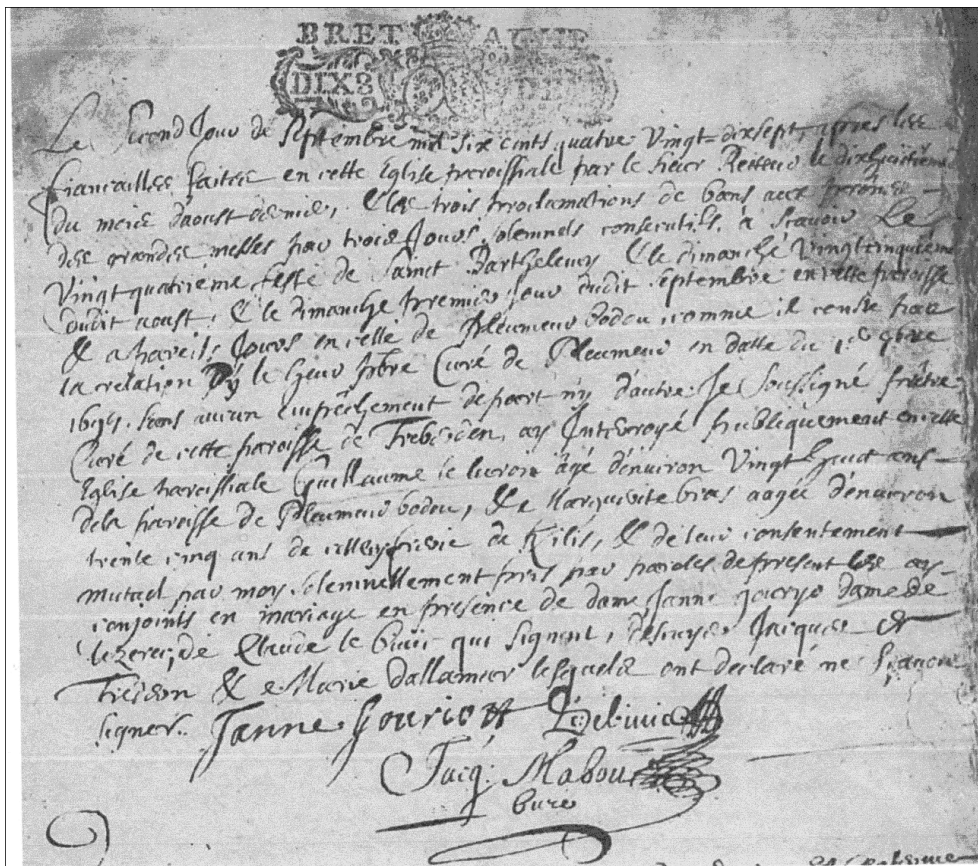 BRET AGNE
DIX 8 DE
Le second Jour de Septembre mil six cents quatre Vingt-dixsept, apres les
fiancailles faites en cette Eglise paroissiale par le sieur Recteur le dixhuitieme
du mois d'aoust dernier, & les trois proclamations de bans aux prosnes
des grandes messes par trois Jours solemnels consecutifs, a scavoir Le
Vingt quatriéme feste de Sainct Barthelemy & le dimanche Vingtcinquiéme
dudit aoust, & le dimanche premier Jour dudit septembre en cette paroisse
& a pareils Jours en celle de Pleumeur bodou, comme il conste par
la relation le Curé de Pleumeur en datte du 1er
1697, sans aucun empéchement de part ny d'autre, Je soussigné prêtre
Curé de cette paroisse de Trebeurden, ay Interrogé publiquement en cette
Eglise paroissiale Guillaume le agé d'environ Vingt huit ans
de la paroisse de Pleumeur bodou, & Marguerite bras aagée d'environ
trente cinq ans de de Kilis, & de leur consentement
mutuel par moy solemnellement pris par paroles de present les ay
conjoints en mariage en presence de dame Janne dame de
de Claude le qui signent, Jacques
& Marie dallamour lesquels ont declaré ne scavoir
signer.
Janne Gouriot
Jacq: Mabou
Curé